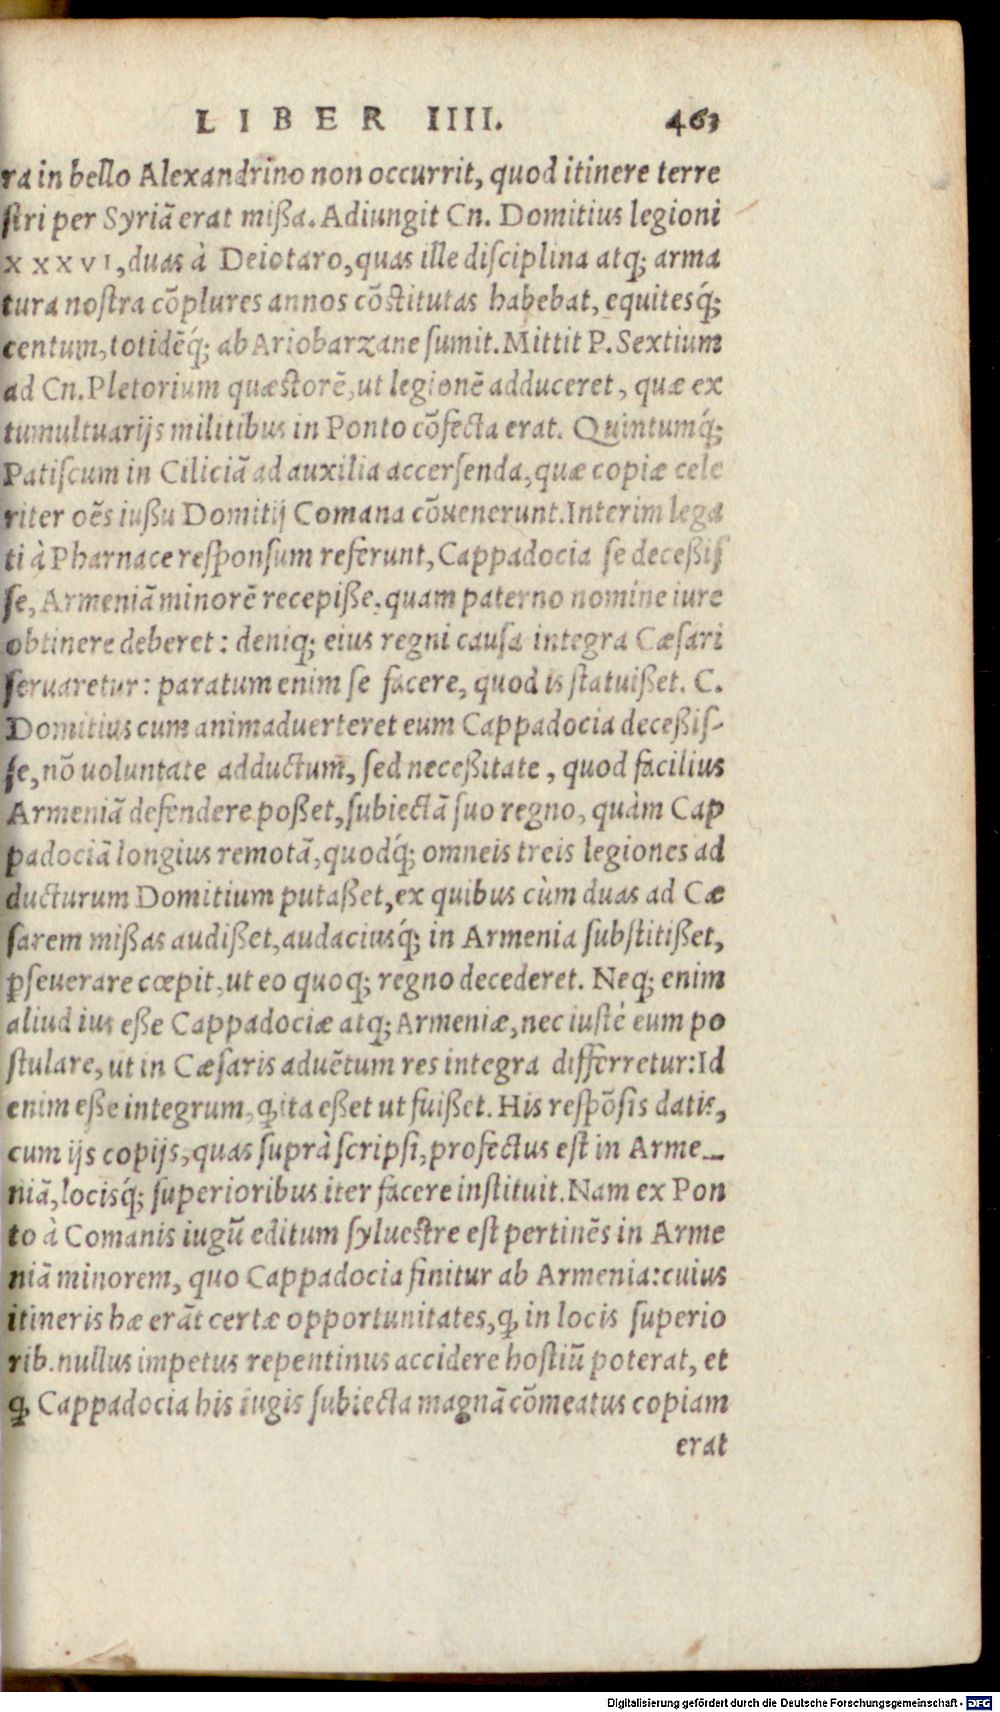 LIBER IIII. 463
ra in bello Alexandrino non occurrit, quod itinere terre
ſtri per Syriã erat miſſa. Adiungit Cn. Domitius legioni
XXXVI, duas à Deiotaro, quas ille diſciplina atq; arma
tura noſtra cõplures annos cõſtitutas habebat, equitesq́;
centum, totidẽq́; ab Ariobarzane ſumit. Mittit P. Sextium
ad Cn. Pletorium quæſtorẽ, ut legionẽ adduceret, quæ ex
tumultuarijs militibus in Ponto cõfecta erat. Quintumq́;
Patiſcum in Ciliciã ad auxilia accerſenda, quæ copiæ cele
riter oẽs iuſſu Domitij Comana cõuenerunt. Interim lega
ti à Pharnace reſponſum referunt, Cappadocia ſe deceſſiſ
ſe, Armeniã minorẽ recepiſſe, quam paterno nomine iure
obtinere deberet: deniq; eius regni cauſa integra Cæſari
ſeruaretur: paratum enim ſe facere, quod is ſtatuiſſet. C.
Domitius cum animaduerteret eum Cappadocia deceſſiſ-
ſe, nõ uoluntate adductum, ſed neceſſitate, quod facilius
Armeniã defendere poſſet, ſubiectã ſuo regno, quàm Cap
padociã longius remotã, quodq́; omneis treis legiones ad
ducturum Domitium putaſſet, ex quibus cùm duas ad Cæ
ſarem miſſas audiſſet, audaciusq́; in Armenia ſubſtitiſſet,
ꝑſeuerare cœpit, ut eo quoq; regno decederet. Neq; enim
aliud ius eſſe Cappadociæ atq; Armeniæ, nec iuſtè eum po
ſtulare, ut in Cæſaris aduẽtum res integra differretur: Id
enim eſſe integrum, ꝙ ita eſſet ut fuiſſet. His reſpõſis datis,
cum ijs copijs, quas ſuprà ſcripſi, profectus eſt in Arme_
niã, locisq́; ſuperioribus iter facere inſtituit. Nam ex Pon
to à Comanis iugũ editum ſylueſtre eſt pertinẽs in Arme
niã minorem, quo Cappadocia finitur ab Armenia: cuius
itineris hæ erãt certæ opportunitates, ꝙ in locis ſuperio
rib. nullus impetus repentinus accidere hoſtiũ poterat, et
ꝙ Cappadocia his iugis ſubiecta magnã cõmeatus copiam
erat
Digitalisierung gefördert durch die Deutsche Forschungsgemeinschaft - DFG